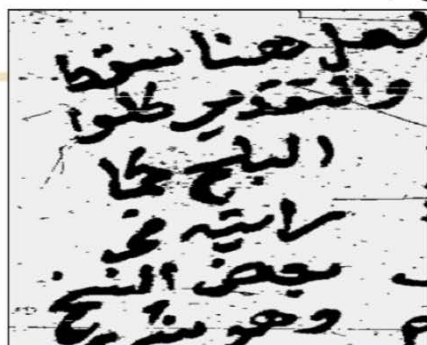 لعل هنا سقطا
والتقدير كلوا
البلح كما
رايته في
بعض النسخ
وهو